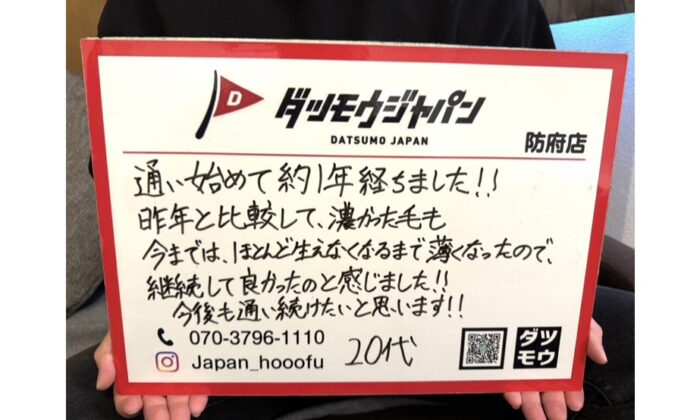 D
ダツモウジャパン
DATSUMO JAPAN
防府店
通い始めて約1年経ちました!!
昨年と比較して、濃かった毛も
今までは、ほとんど生えなくなるまで薄くなったので、
継続して良かったのと感じました!!
今後も通い続けたいと思います!!
070-3796-1110
Japan_hooofu
20代
ダツ
モウ